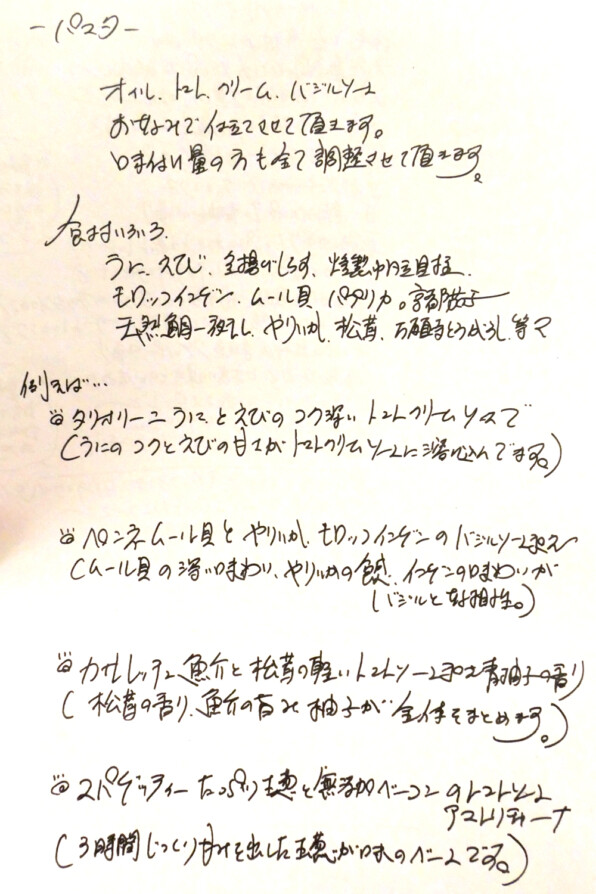 -パスタ-
オイル、トマト、クリーム、バジルソース
お好みで仕立てさせて頂きます。
味付け量の方も全て調整させて頂きます。
食材いろいろ
うに、えび、釜揚げしらず、燻製帆立貝柱、
モロッコインゲン、ムール貝 パプリカ。京都茄子
天然鯛一夜干し、やりいか、松茸、万願寺とうがらし、等々
例えば…
タリオリーニ うにとえびのコク深いトマトクリームソースで
(うにのコクとえびの甘さがトマトクリームソースに溶け込んでます。)
ペンネ ムール貝とやりいか、モロッコインゲンのバジルソース和え
(ムール貝の深い味わい、やりいかの食感、インゲンの味わいが
バジルと好相性。)
カサレッチェ 魚介と松茸の軽いトマトソース和え 青柚子の香り
(松茸の香り、魚介の旨み 柚子が全体をまとめます。)
スパゲッティー たっぷり玉葱と無添加ベーコンのトマトソース
アマトリチャーナ
(3時間じっくり甘みを出した玉葱が味のベースです。)